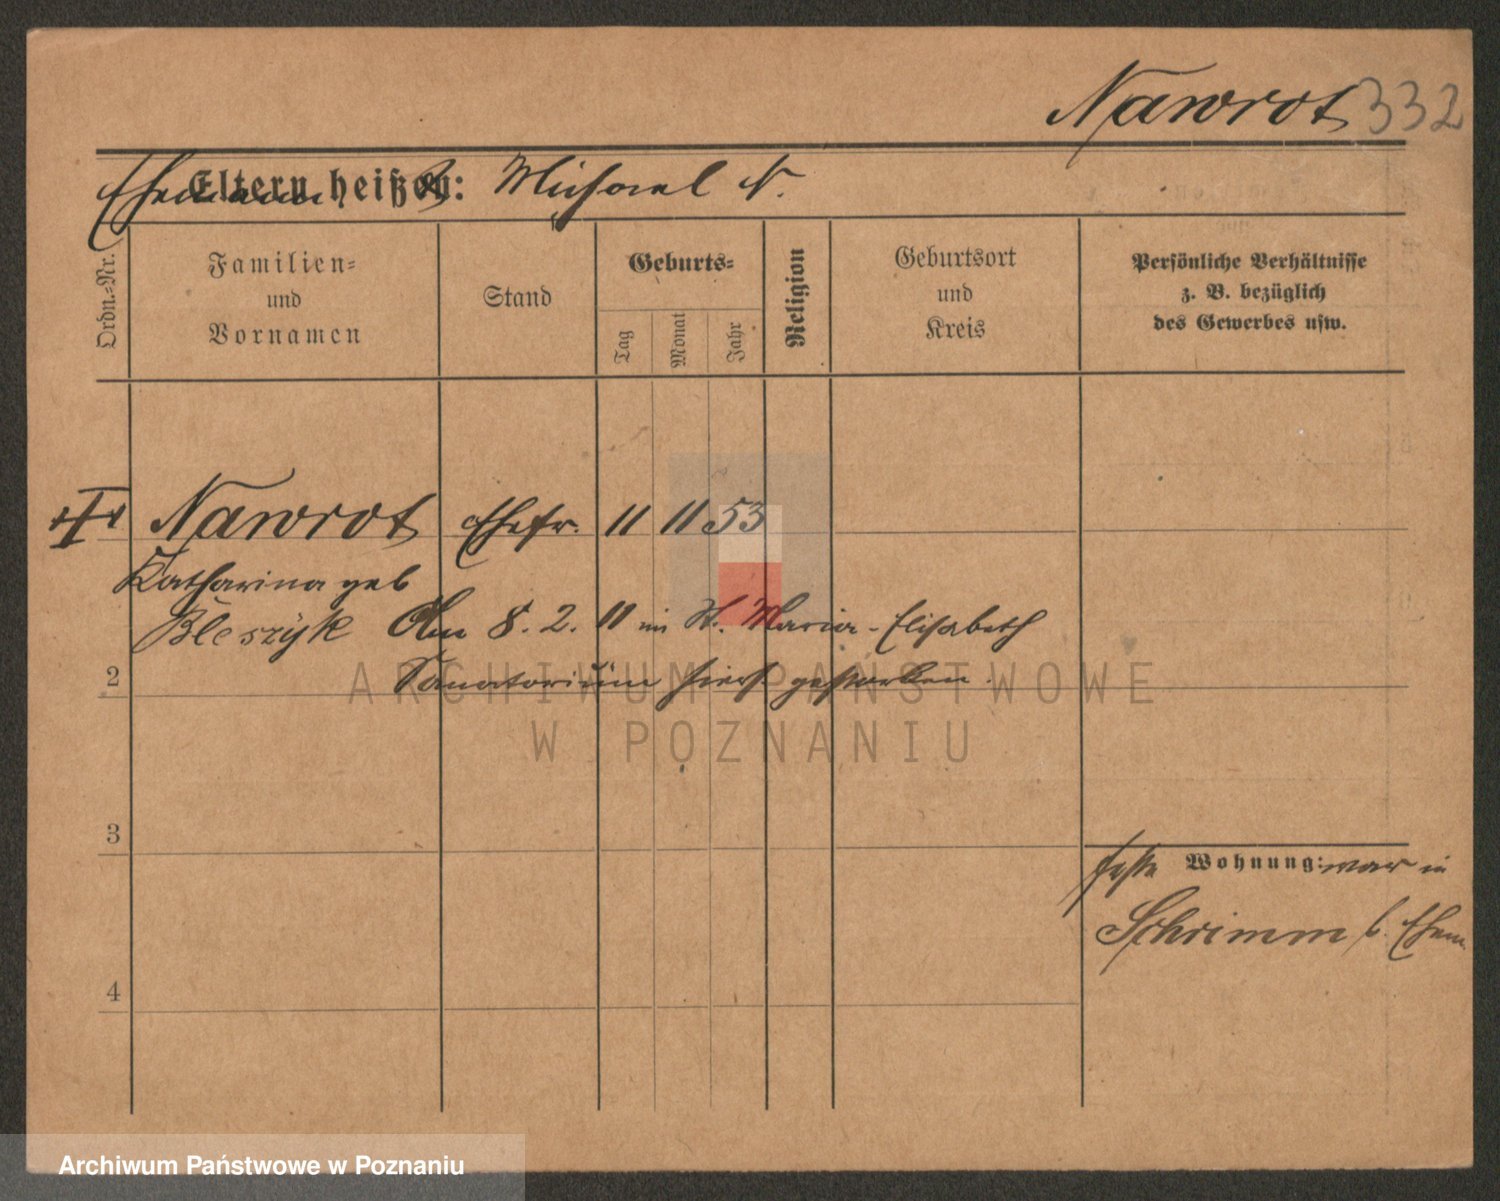 Nawrot 332
Eltern heißen:
Ehemann h. Michael N.
Ordn.-Nr.
Familien-
und
Vornamen
Stand
Geburts-
Tag
Monat
Jahr
Religion
Geburtsort
und
Kreis
Persönliche Verhältnisse
z. B. bezüglich
des Gewerbes usw.
Nawrot Ehefr. 11 11 53
Katharina geb
Bleszÿk Am 8. 2. 11 im St. Maria-Elisabeth
2 Sanatorium hiers. gestorben.
ARCHIWUM PAŃSTWOWE
W POZNANIU
3
feste Wohnung: war in
Schrimm b. Ehem.
4
Archiwum Państwowe w Poznaniu